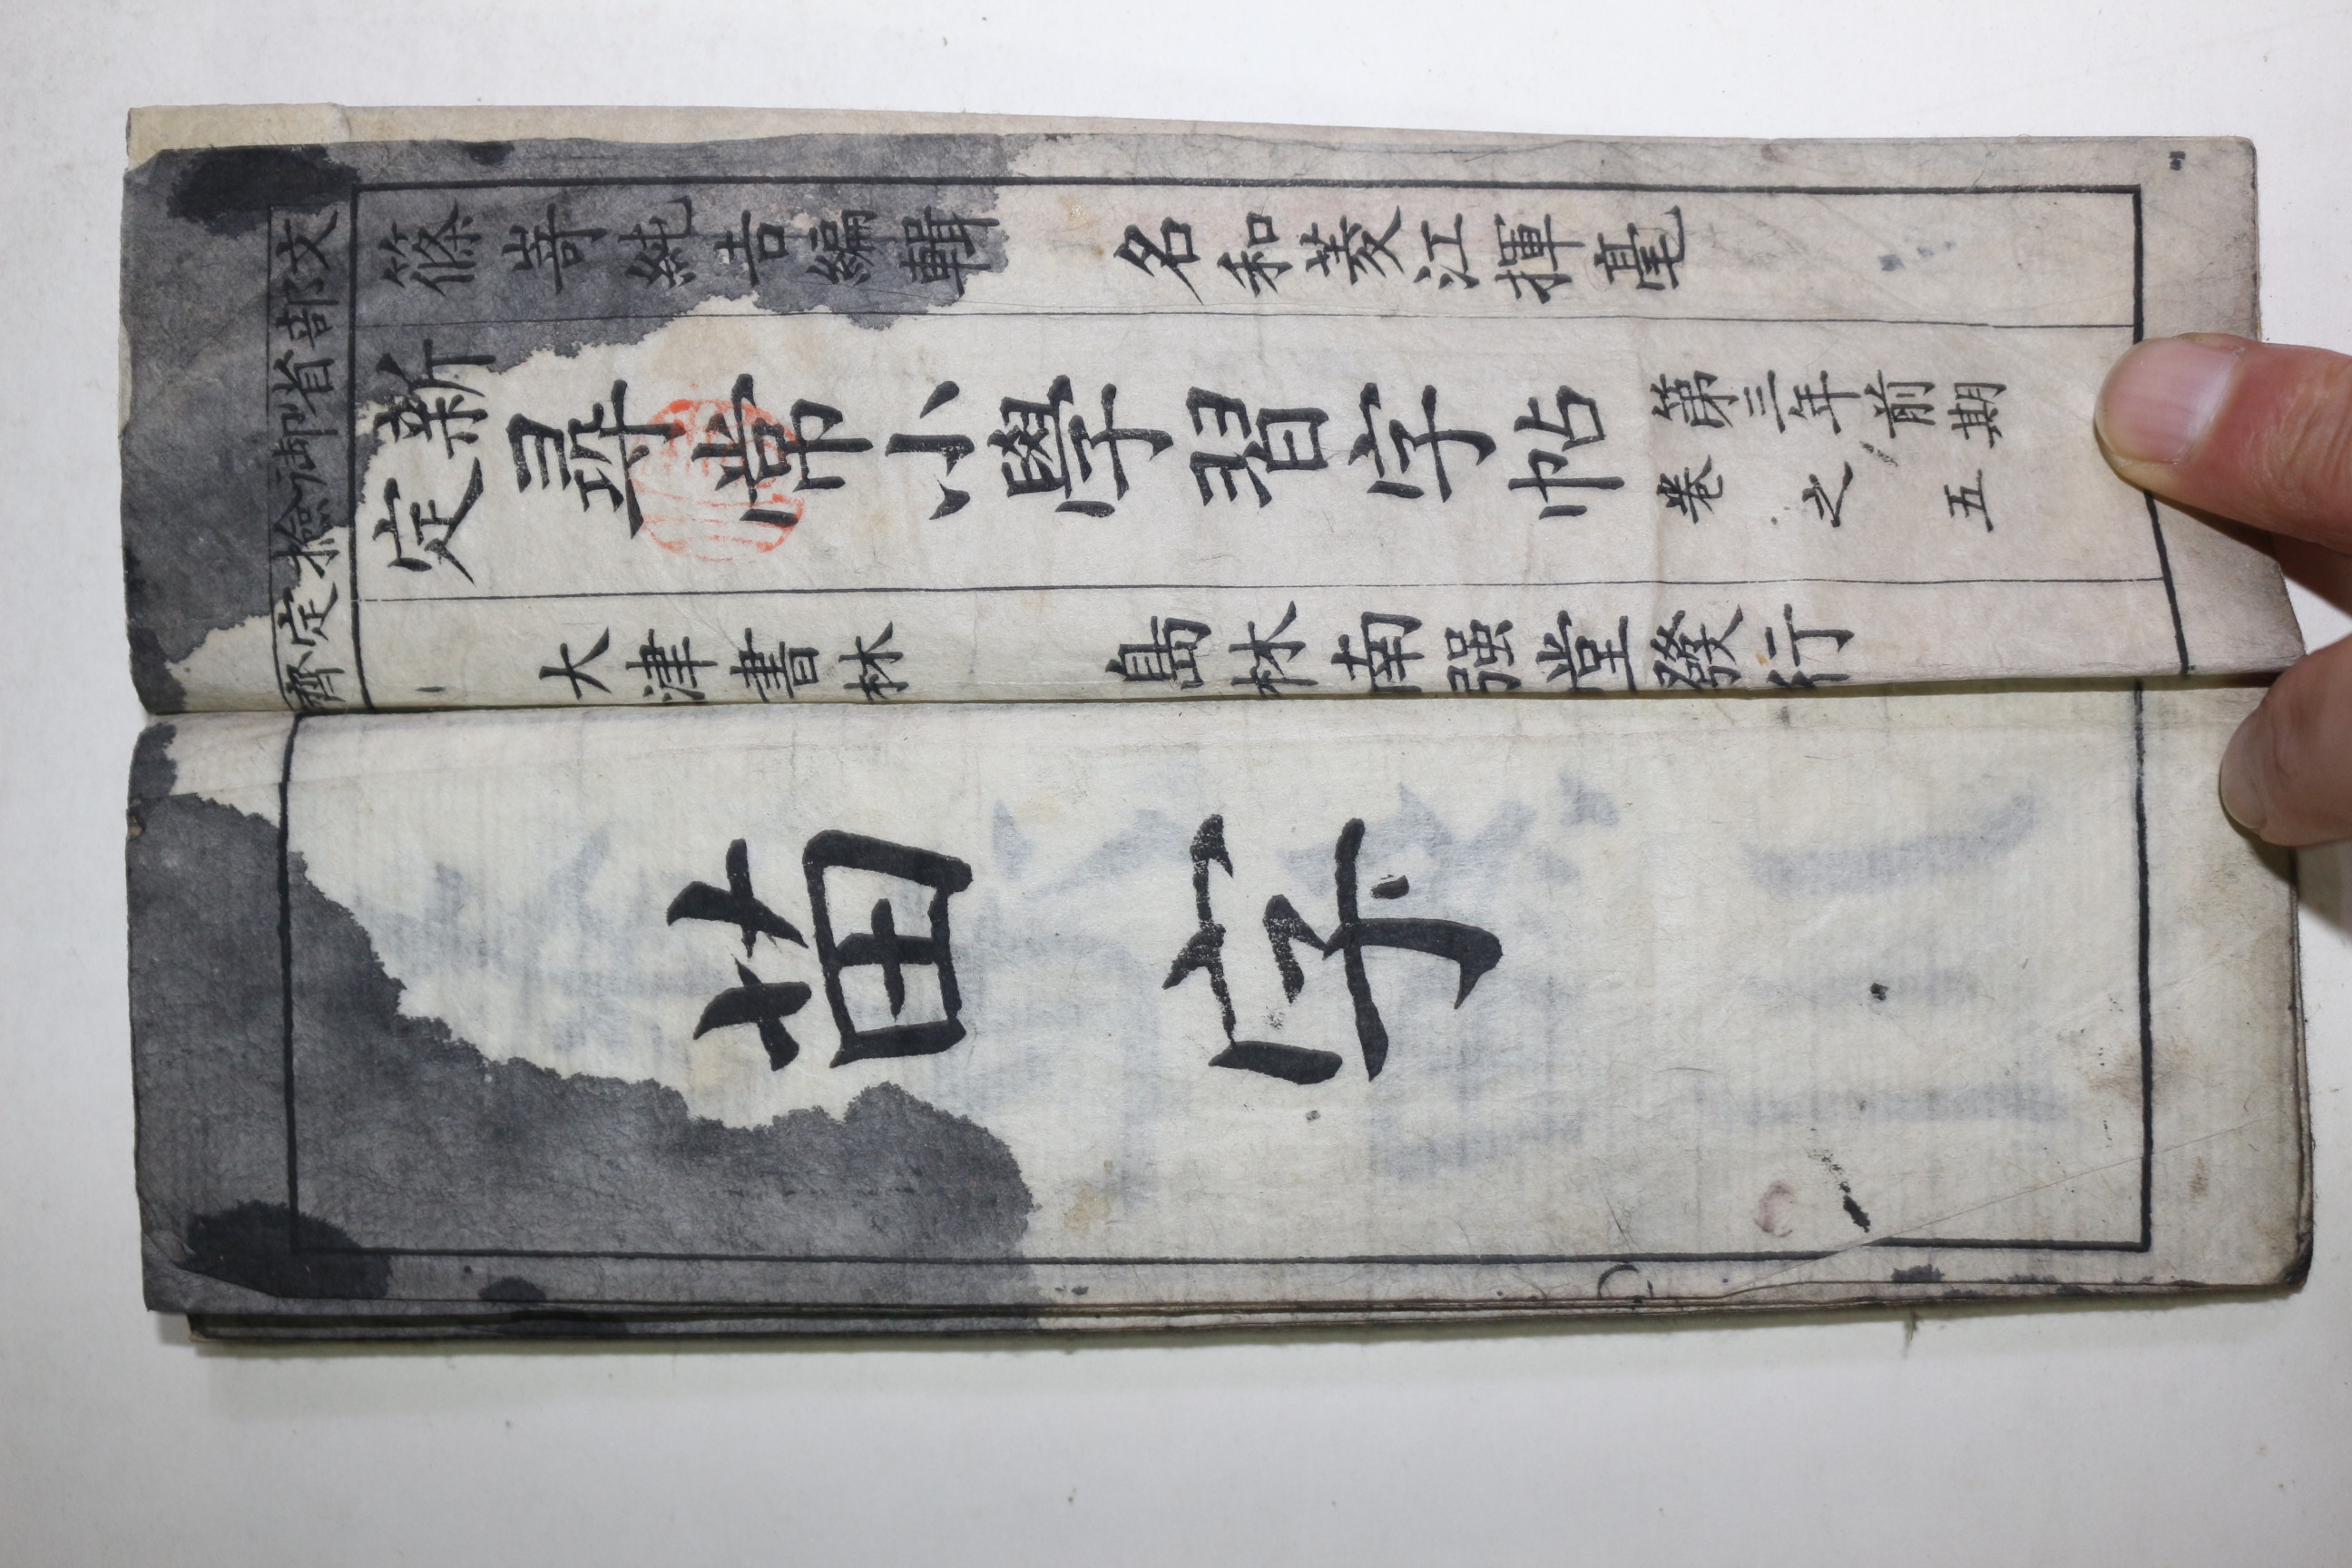 文部省御撿定齊
篠嵜純吉編輯　名和菱江揮毫
新定尋常小學習字帖
第三年前期
卷之五
大津書林　島林南强堂發行
苗字